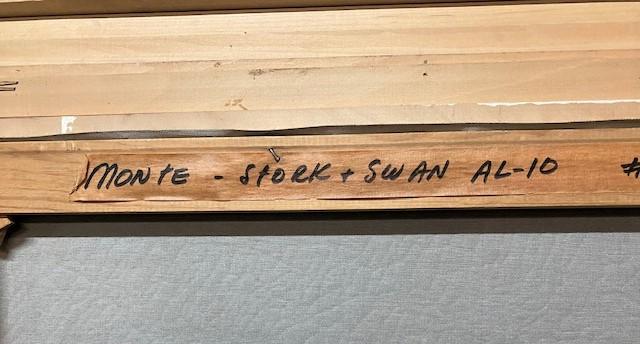 MONTE - STORK + SWAN AL-10 #